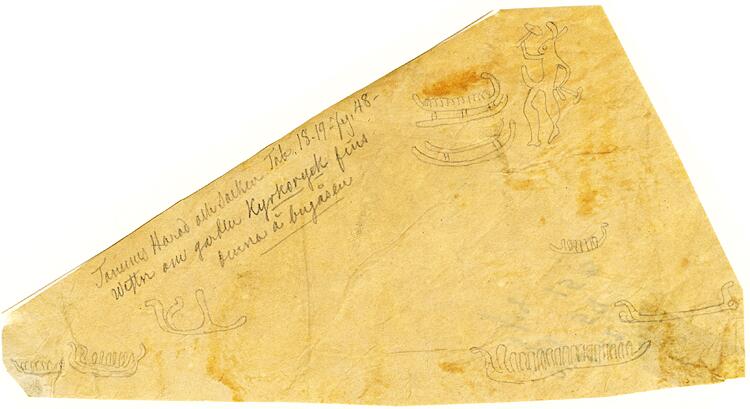 Tanums Harad och Socken Tab. 18-19- fig 48-
Wester om garden Kyrkoryck fins
denna å bergåsen